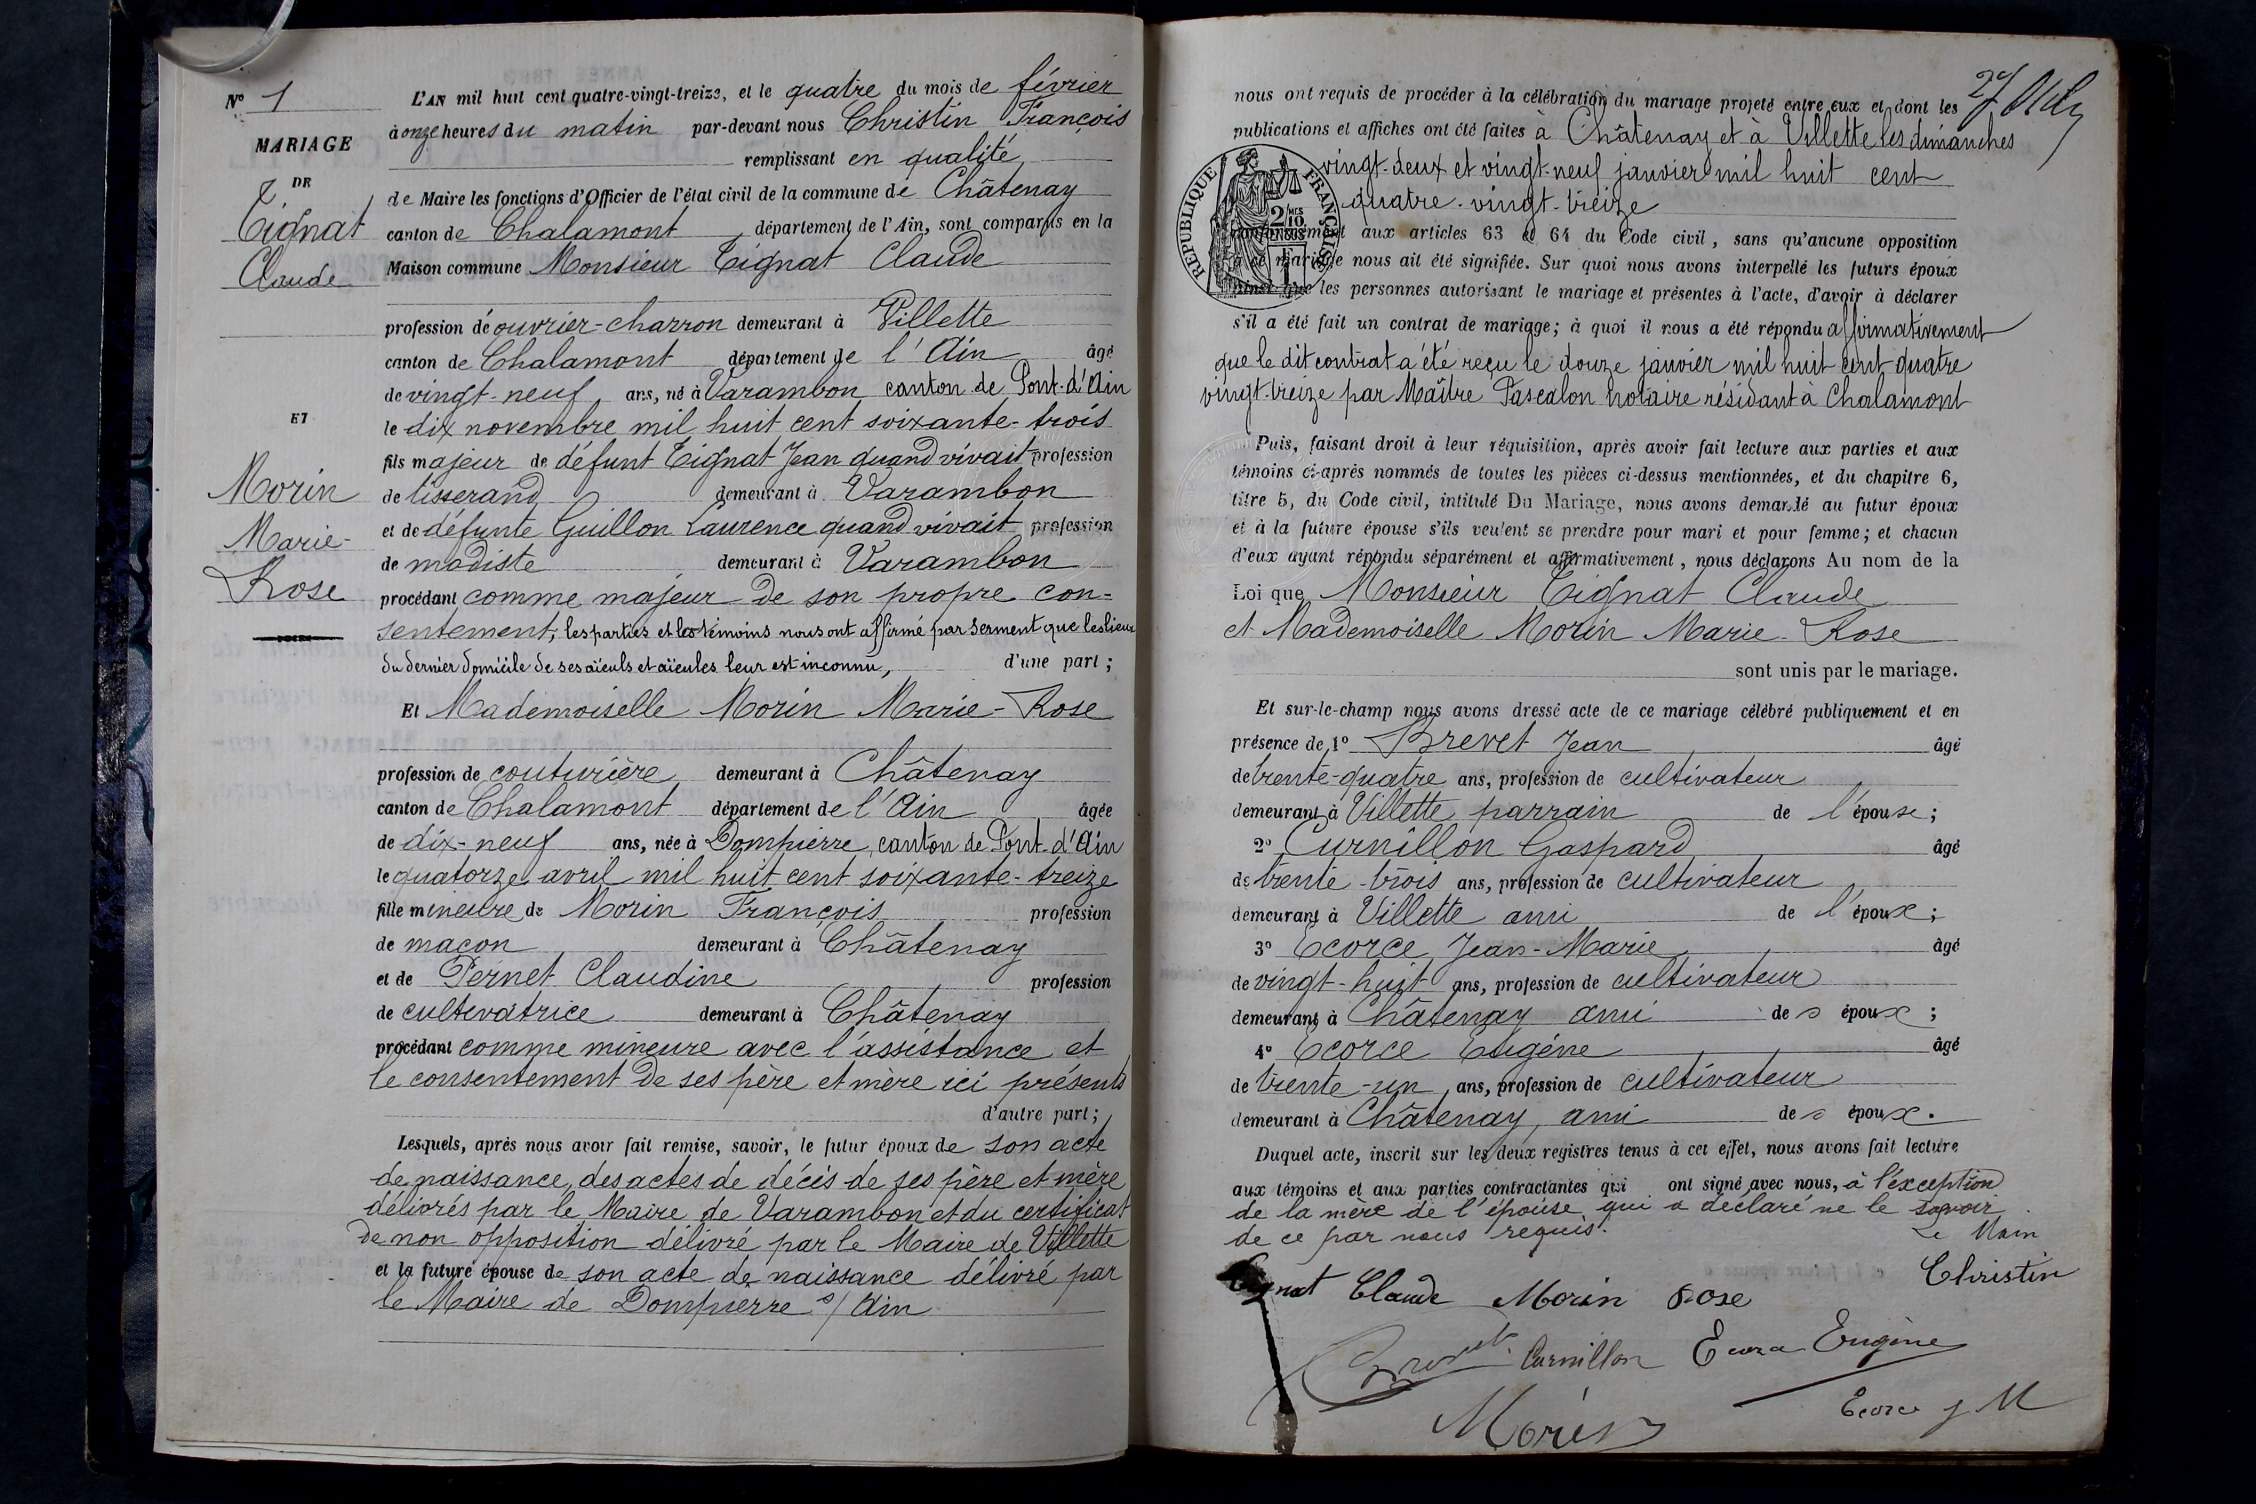 Nº 1
MARIAGE
DE
Tignat
Claude
ET
Morin
Marie-
Rose
L'AN mil huit cent quatre-vingt-treize, et le quatre du mois de février
à onze heures du matin par-devant nous Christin François
remplissant en qualité
de Maire les fonctions d'Officier de l'état civil de la commune de Châtenay
canton de Chalamont département de l'Ain, sont comparus en la
Maison commune Monsieur Tignat Claude
profession d'ouvrier-charron demeurant à Villette
canton de Chalamont département de l'Ain âgé
de vingt-neuf ans, né à Varambon canton de Pont-d'Ain
le dix novembre mil huit cent soixante-trois
fils majeur de défunt Tignat Jean quand vivait profession
de tisserand demeurant à Varambon
et de défunte Guillon Laurence quand vivait profession
de modiste demeurant à Varambon
procédant comme majeur de son propre con=
sentement, les parties et les témoins nous ont affirmé par serment que les lieux
du dernier domicile de ses aïeuls et aïeules leur est inconnu, d'une part;
Et Mademoiselle Morin Marie-Rose
profession de couturière demeurant à Châtenay
canton de Chalamont département de l'Ain âgée
de dix-neuf ans, née à Dompierre, canton de Pont-d'Ain
le quatorze avril mil huit cent soixante-treize
fille mineure de Morin François profession
de maçon demeurant à Châtenay
et de Pernet Claudine profession
de cultivatrice demeurant à Châtenay
procédant comme mineure avec l'assistance et
le consentement de ses père et mère ici présents
d'autre part;
Lesquels, après nous avoir fait remise, savoir, le futur époux de son acte
de naissance, des actes de décès de ses père et mère
délivrés par le Maire de Varambon et du certificat
de non opposition délivré par le Maire de Villette
et la future épouse de son acte de naissance délivré par
le Maire de Dompierre s/ Ain
nous ont requis de procéder à la célébration du mariage projeté entre eux et dont les
publications et affiches ont été faites à Châtenay et à Villette les dimanches
vingt-deux et vingt-neuf janvier mil huit cent
quatre-vingt-treize
RÉPUBLIQUE FRANÇAISE
conformément aux articles 63 et 64 du Code civil, sans qu'aucune opposition
à ce mariage nous ait été signifiée. Sur quoi nous avons interpellé les futurs époux
ainsi que les personnes autorisant le mariage et présentes à l'acte, d'avoir à déclarer
s'il a été fait un contrat de mariage; à quoi il nous a été répondu affirmativement
que le dit contrat a été reçu le douze janvier mil huit cent quatre
vingt-treize par Maître Pascalon notaire résidant à Chalamont
Puis, faisant droit à leur réquisition, après avoir fait lecture aux parties et aux
témoins ci-après nommés de toutes les pièces ci-dessus mentionnées, et du chapitre 6,
titre 5, du Code civil, intitulé Du Mariage, nous avons demandé au futur époux
et à la future épouse s'ils veulent se prendre pour mari et pour femme; et chacun
d'eux ayant répondu séparément et affirmativement, nous déclarons Au nom de la
Loi que Monsieur Tignat Claude
et Mademoiselle Morin Marie-Rose
sont unis par le mariage.
Et sur-le-champ nous avons dressé acte de ce mariage célébré publiquement et en
présence de 1º Brevet Jean âgé
de trente-quatre ans, profession de cultivateur
demeurant à Villette parrain de l'épouse;
2º Curnillon Gaspard âgé
de trente-trois ans, profession de cultivateur
demeurant à Villette ami de l'époux;
3º Ecorce Jean-Marie âgé
de vingt-huit ans, profession de cultivateur
demeurant à Châtenay ami des époux;
4º Ecorce Eugène âgé
de trente-un ans, profession de cultivateur
demeurant à Châtenay, ami des époux.
Duquel acte, inscrit sur les deux registres tenus à cet effet, nous avons fait lecture
aux témoins et aux parties contractantes qui ont signé avec nous, à l'exception
de la mère de l'épouse qui a déclaré ne le savoir
de ce par nous requis.
Le Maire
Christin
Tignat Claude Morin Rose
Brevet Curnillon Ecorce Eugène
Ecorce J M
Morin